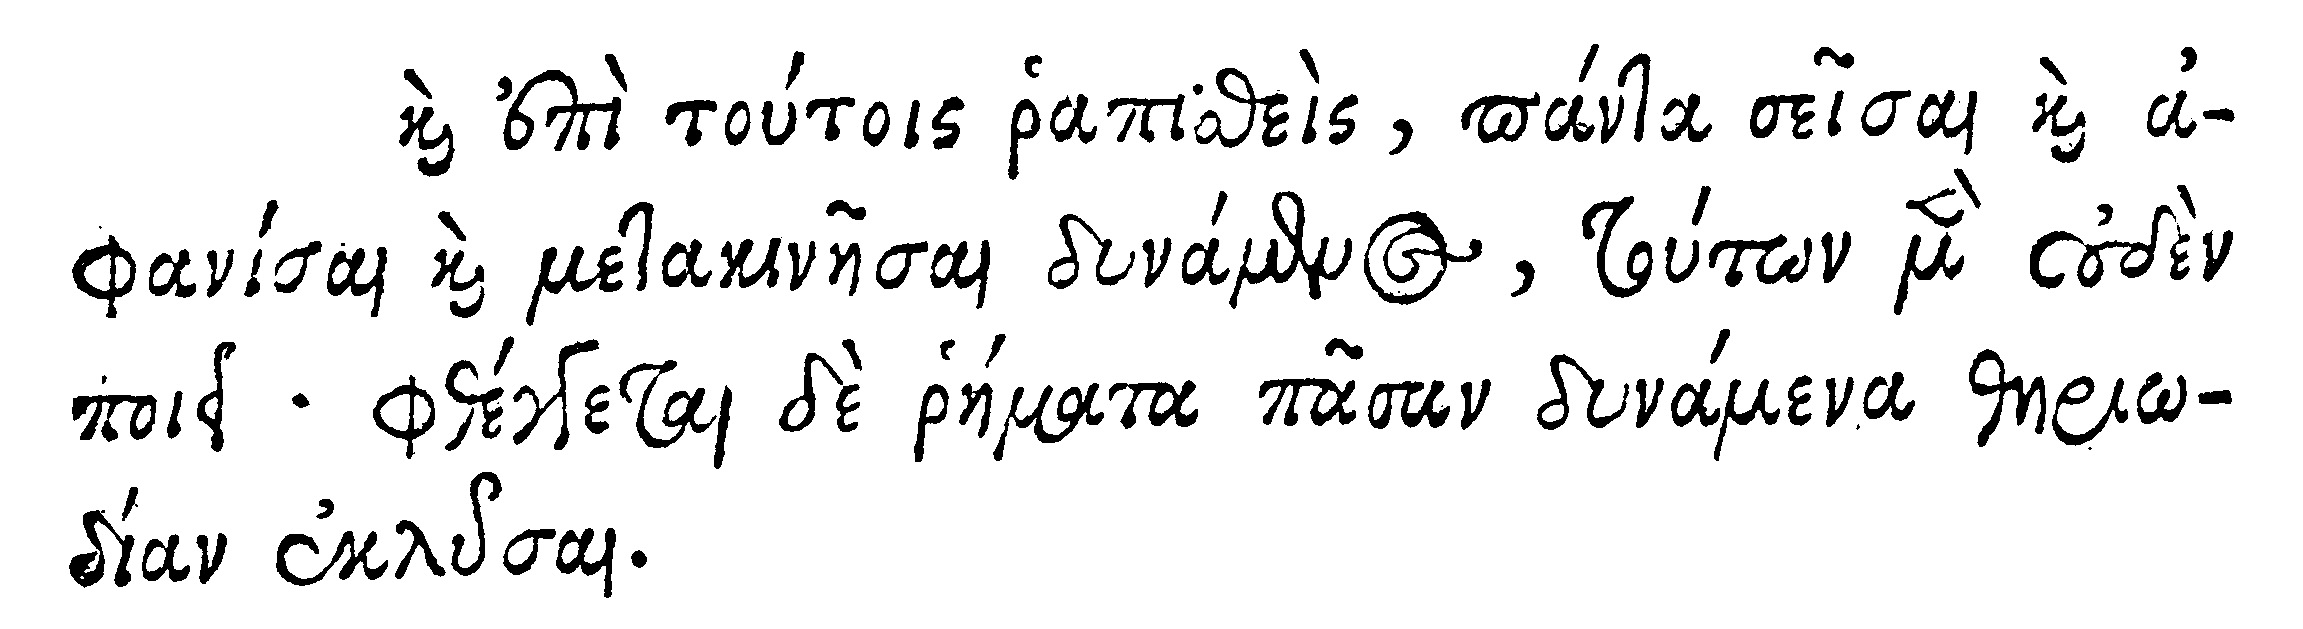 καὶ ἐπὶ τούτοις ῥαπισθεὶς, πάντα σεῖσαι καὶ ἀ-
φανίσαι καὶ μετακινῆσαι δυνάμενος, τούτων μὲν οὐδὲν
ποιεῖ. φθέγγεται δὲ ῥήματα πᾶσαν δυνάμενα θηριω-
δίαν ἐκλῦσαι.